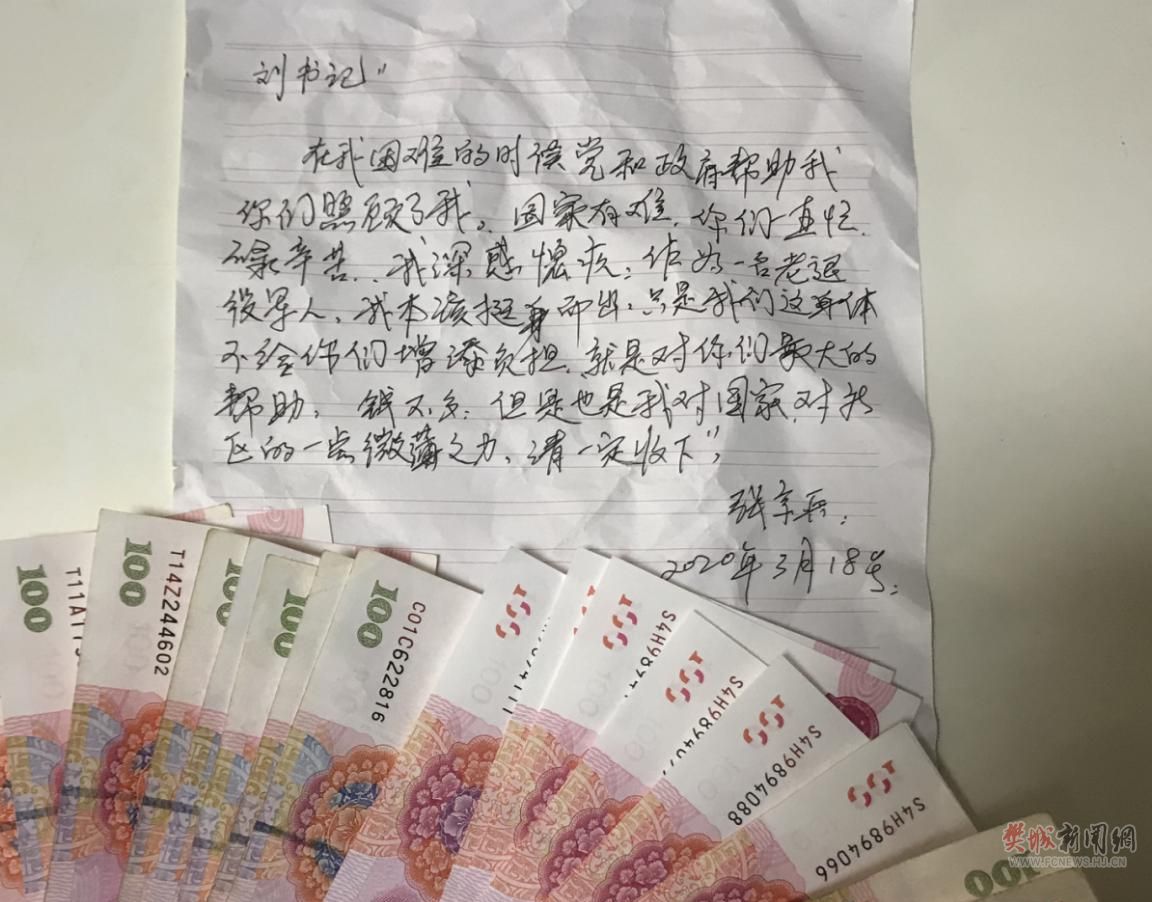 刘书记"
在我困难的时候党和政府帮助我
你们照顾了我。国家有难.你们一直忙.
碌辛苦..我深感愧疚;作为一名老退
役军人、我本该挺身而出;只是我们这身体
不给你们增添负担.就是对你们最大的
帮助。钱不多;但是也是我对国家.对社
区的一点微薄之力、请一定收下",
2020年3月18号.
100
T11A11
100
T14Z244602
100
100
100
C01C622816
S4H9894088
S4H9894066
100
樊城新闻網
WWW.FCNEWS.HJ.CN